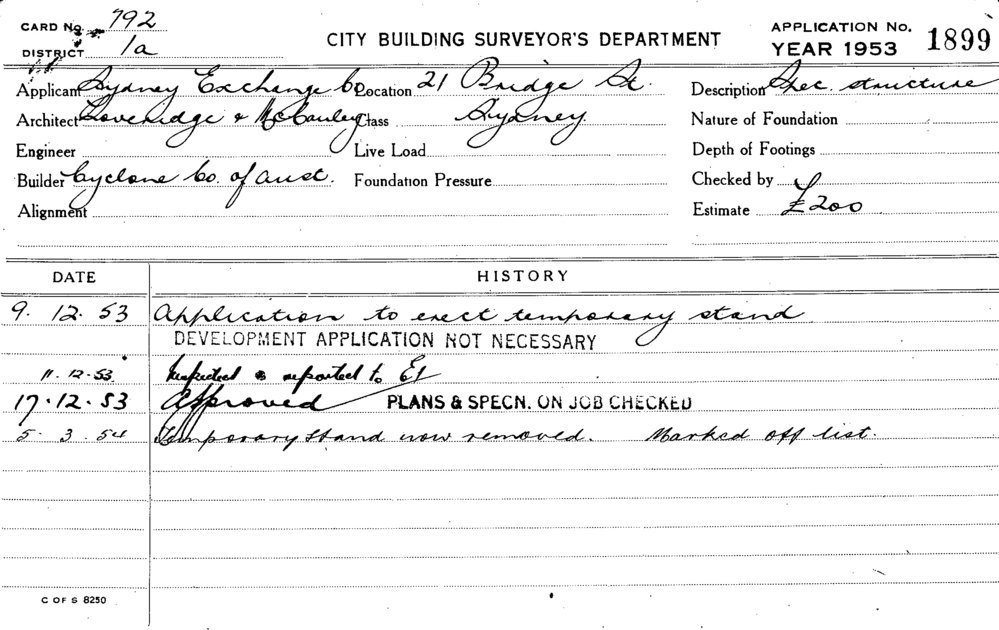 CARD No. 792
DISTRICT 1a
CITY BUILDING SURVEYOR'S DEPARTMENT
APPLICATION No. 1899
YEAR 1953
Applicant Sydney Exchange Co. Location 21 Bridge St. Description Spec. structure
Architect Loveridge & McCauley Class Sydney Nature of Foundation
Engineer Live Load Depth of Footings
Builder Cyclone Co. of Aust. Foundation Pressure Checked by
Alignment Estimate £200
DATE HISTORY
9. 12. 53 Application to erect temporary stand
DEVELOPMENT APPLICATION NOT NECESSARY
11. 12. 53 Inspected & reported to
17. 12. 53 Approved PLANS & SPECN. ON JOB CHECKED
5. 3. 54 Temporary stand now removed. Marked off list.
C OF S 8250